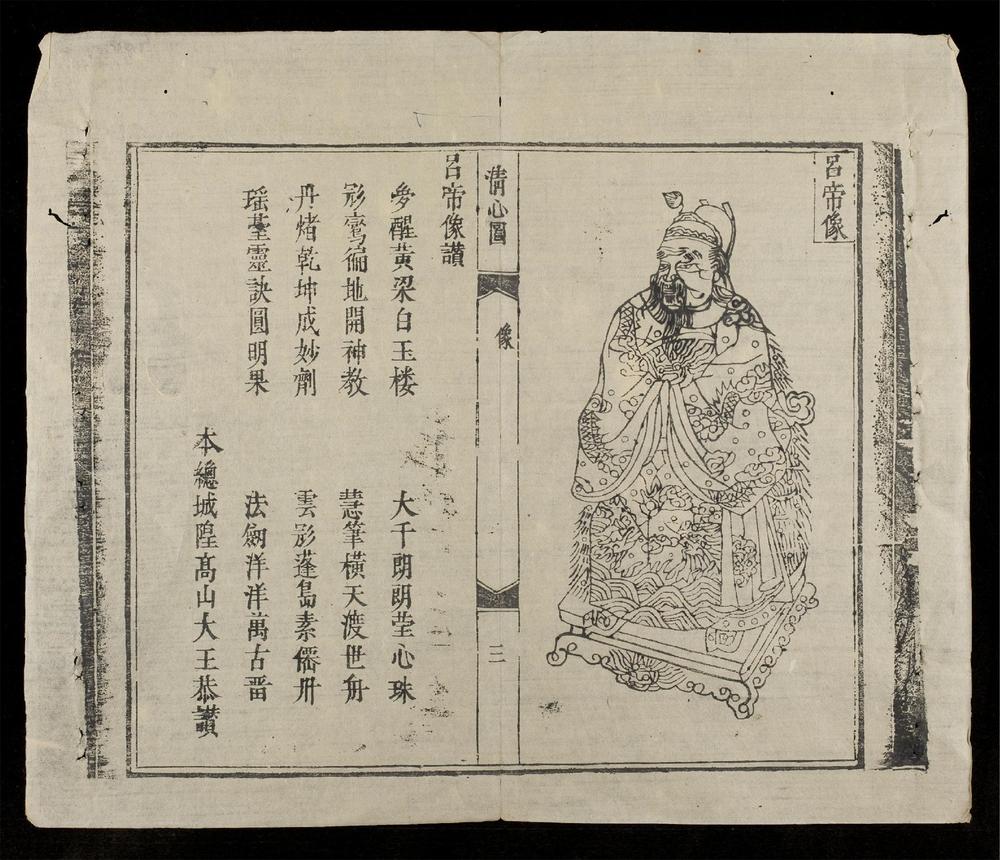 呂帝像
清心圖
像
三
呂帝像讃
夢醒黃梁白玉楼
大千朗朗瑩心珠
彩鸞徧地開神教
慧筆橫天渡世舟
丹烤乾坤成妙劑
雲影蓬島素
瑶臺靈訣圓明果
法劎洋洋萬古晋
本總城隍髙山大王恭讃